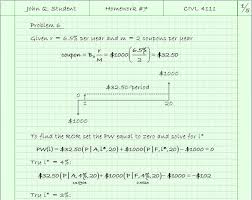 John Q. Student Homework #7 CIVL 4111 1/5
Problem 6
Given r = 6.5% per year and m = 2 coupons per year
coupon = B, r/M = $1000 (6.5%/2) = $32.50
$1000
$32.50/period
0 1 20
$1000
To find the ROR set the PW equal to zero and solve for i*
PW(i) = $32.50(P|A,i*,20) + $1000(P|F,i*,20) − $1000 = 0
Try i* = 4%:
$32.50(P|A,4%,20) + $1000(P|F,4%,20) − $1000 = −$102
Try i* = 3%: